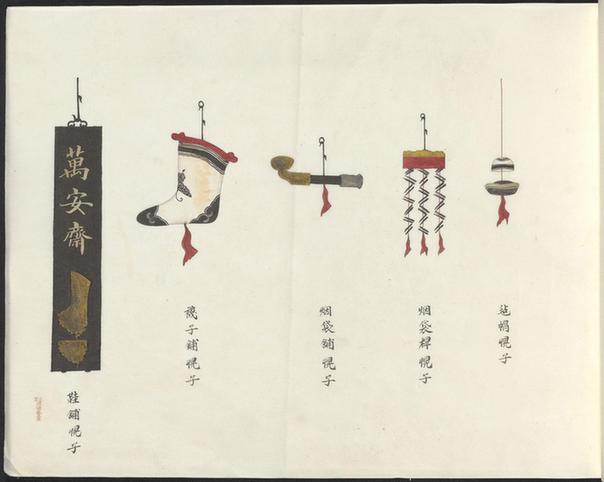 萬安齋
鞋鋪幌子
襪子鋪幌子
烟袋鋪幌子
烟袋桿幌子
毡帽幌子